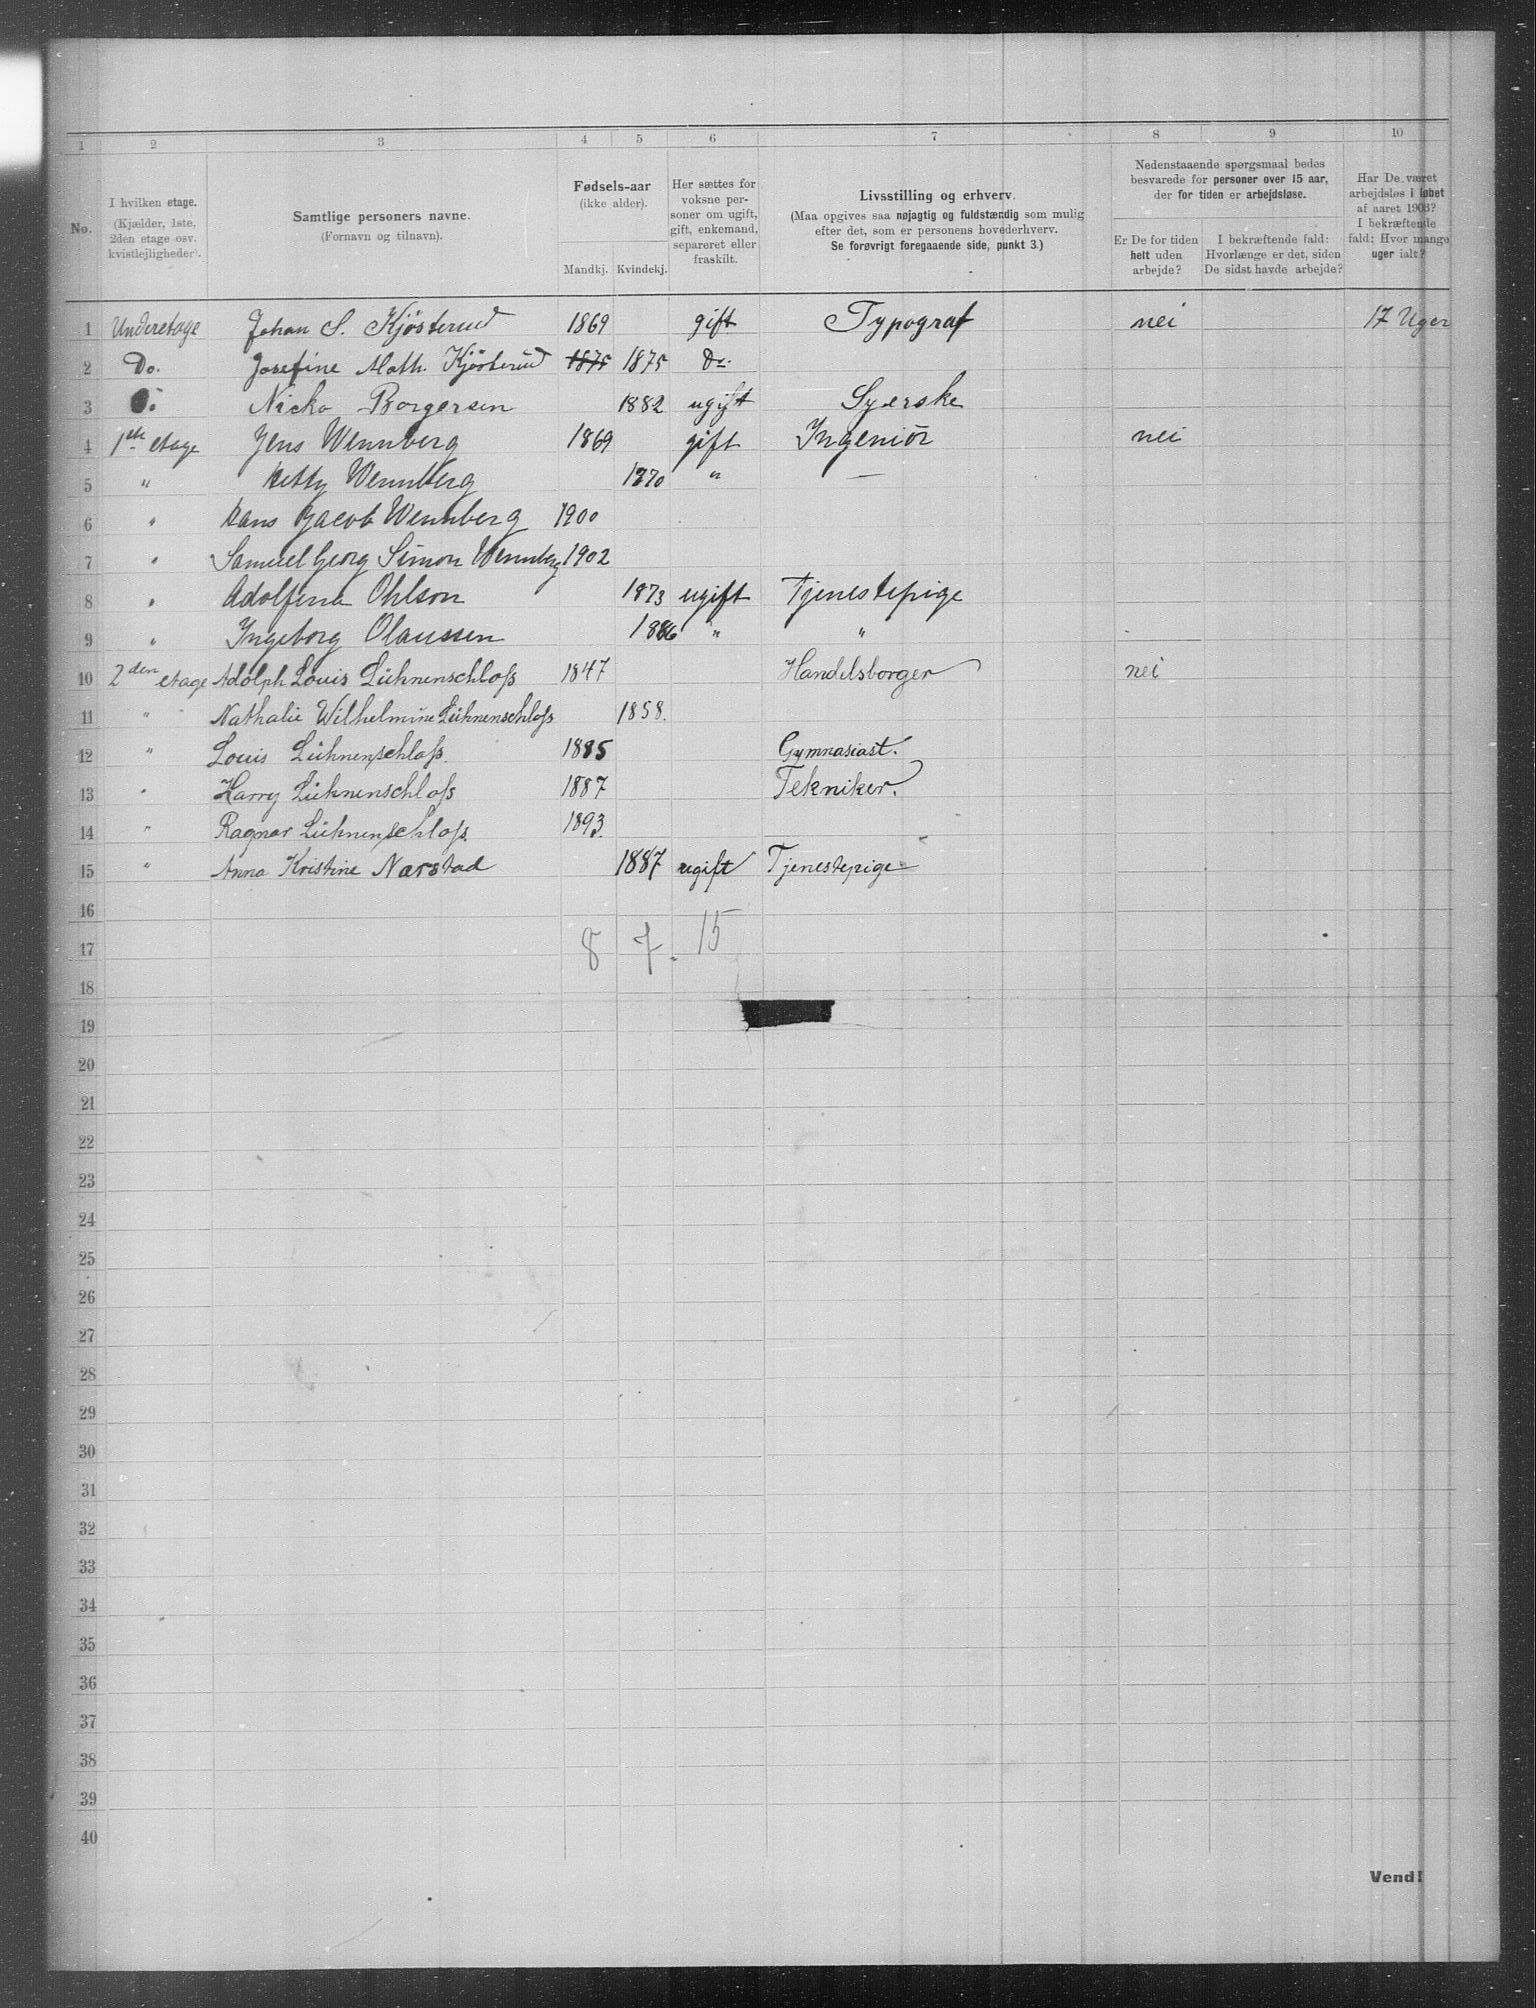 1 2 3 4 5 6 7 8 9 10
No.
I hvilken etage.
(Kjælder, 1ste,
2den etage osv.
kvistlejligheder).
Samtlige personers navne.
(Fornavn og tilnavn).
Fødsels-aar
(ikke alder).
Mandkj. Kvindekj.
Her sættes for
voksne per-
soner om ugift,
gift, enkemand,
separeret eller
fraskilt.
Livsstilling og erhverv.
(Maa opgives saa nøjagtig og fuldstændig som mulig
efter det, som er personens hovederhverv.
Se forøvrigt foregaaende side, punkt 3.)
Nedenstaaende spørgsmaal bedes
besvarede for personer over 15 aar,
der for tiden er arbejdsløse.
Er De for tiden
helt uden
arbejde?
I bekræftende fald:
Hvorlænge er det, siden
De sidst havde arbejde?
Har De været
arbejdsløs i løbet
af aaret 1903?
I bekræftende
fald: Hvor mange
uger ialt?
1 Underetage Johan S. Kjøsterud 1869 gift Typograf nei 17 Uger
2 Do. Josefine Math. Kjøsterud 1875 1875 Do.
3 Nicka Borgersen 1882 ugift Syerske
4 1ste etage Jens Wennberg 1869 gift Ingeniør nei
5 " Hetty Wennberg 1870 " —
6 " Hans Jacob Wennberg 1900
7 " Samuel Georg Simon Wennberg 1902
8 " Adolfina Ohlson 1873 ugift Tjenestepige
9 " Ingeborg Olaussen 1886 " "
10 2den etage Adolph Louis Lühnenschloß 1847 Handelsborger nei
11 " Nathalie Wilhelmine Lühnenschloß 1858.
12 " Louis Lühnenschloß. 1885 Gymnasiast.
13 " Harry Lühnenschloß 1887 Tekniker.
14 " Ragnar Lühnenschloß. 1893.
15 " Anna Kristine Narstad 1887 ugift Tjenestepige
16
17 8 7. 15
18
19
20
21
22
23
24
25
26
27
28
29
30
31
32
33
34
35
36
37
38
39
40
Vend!